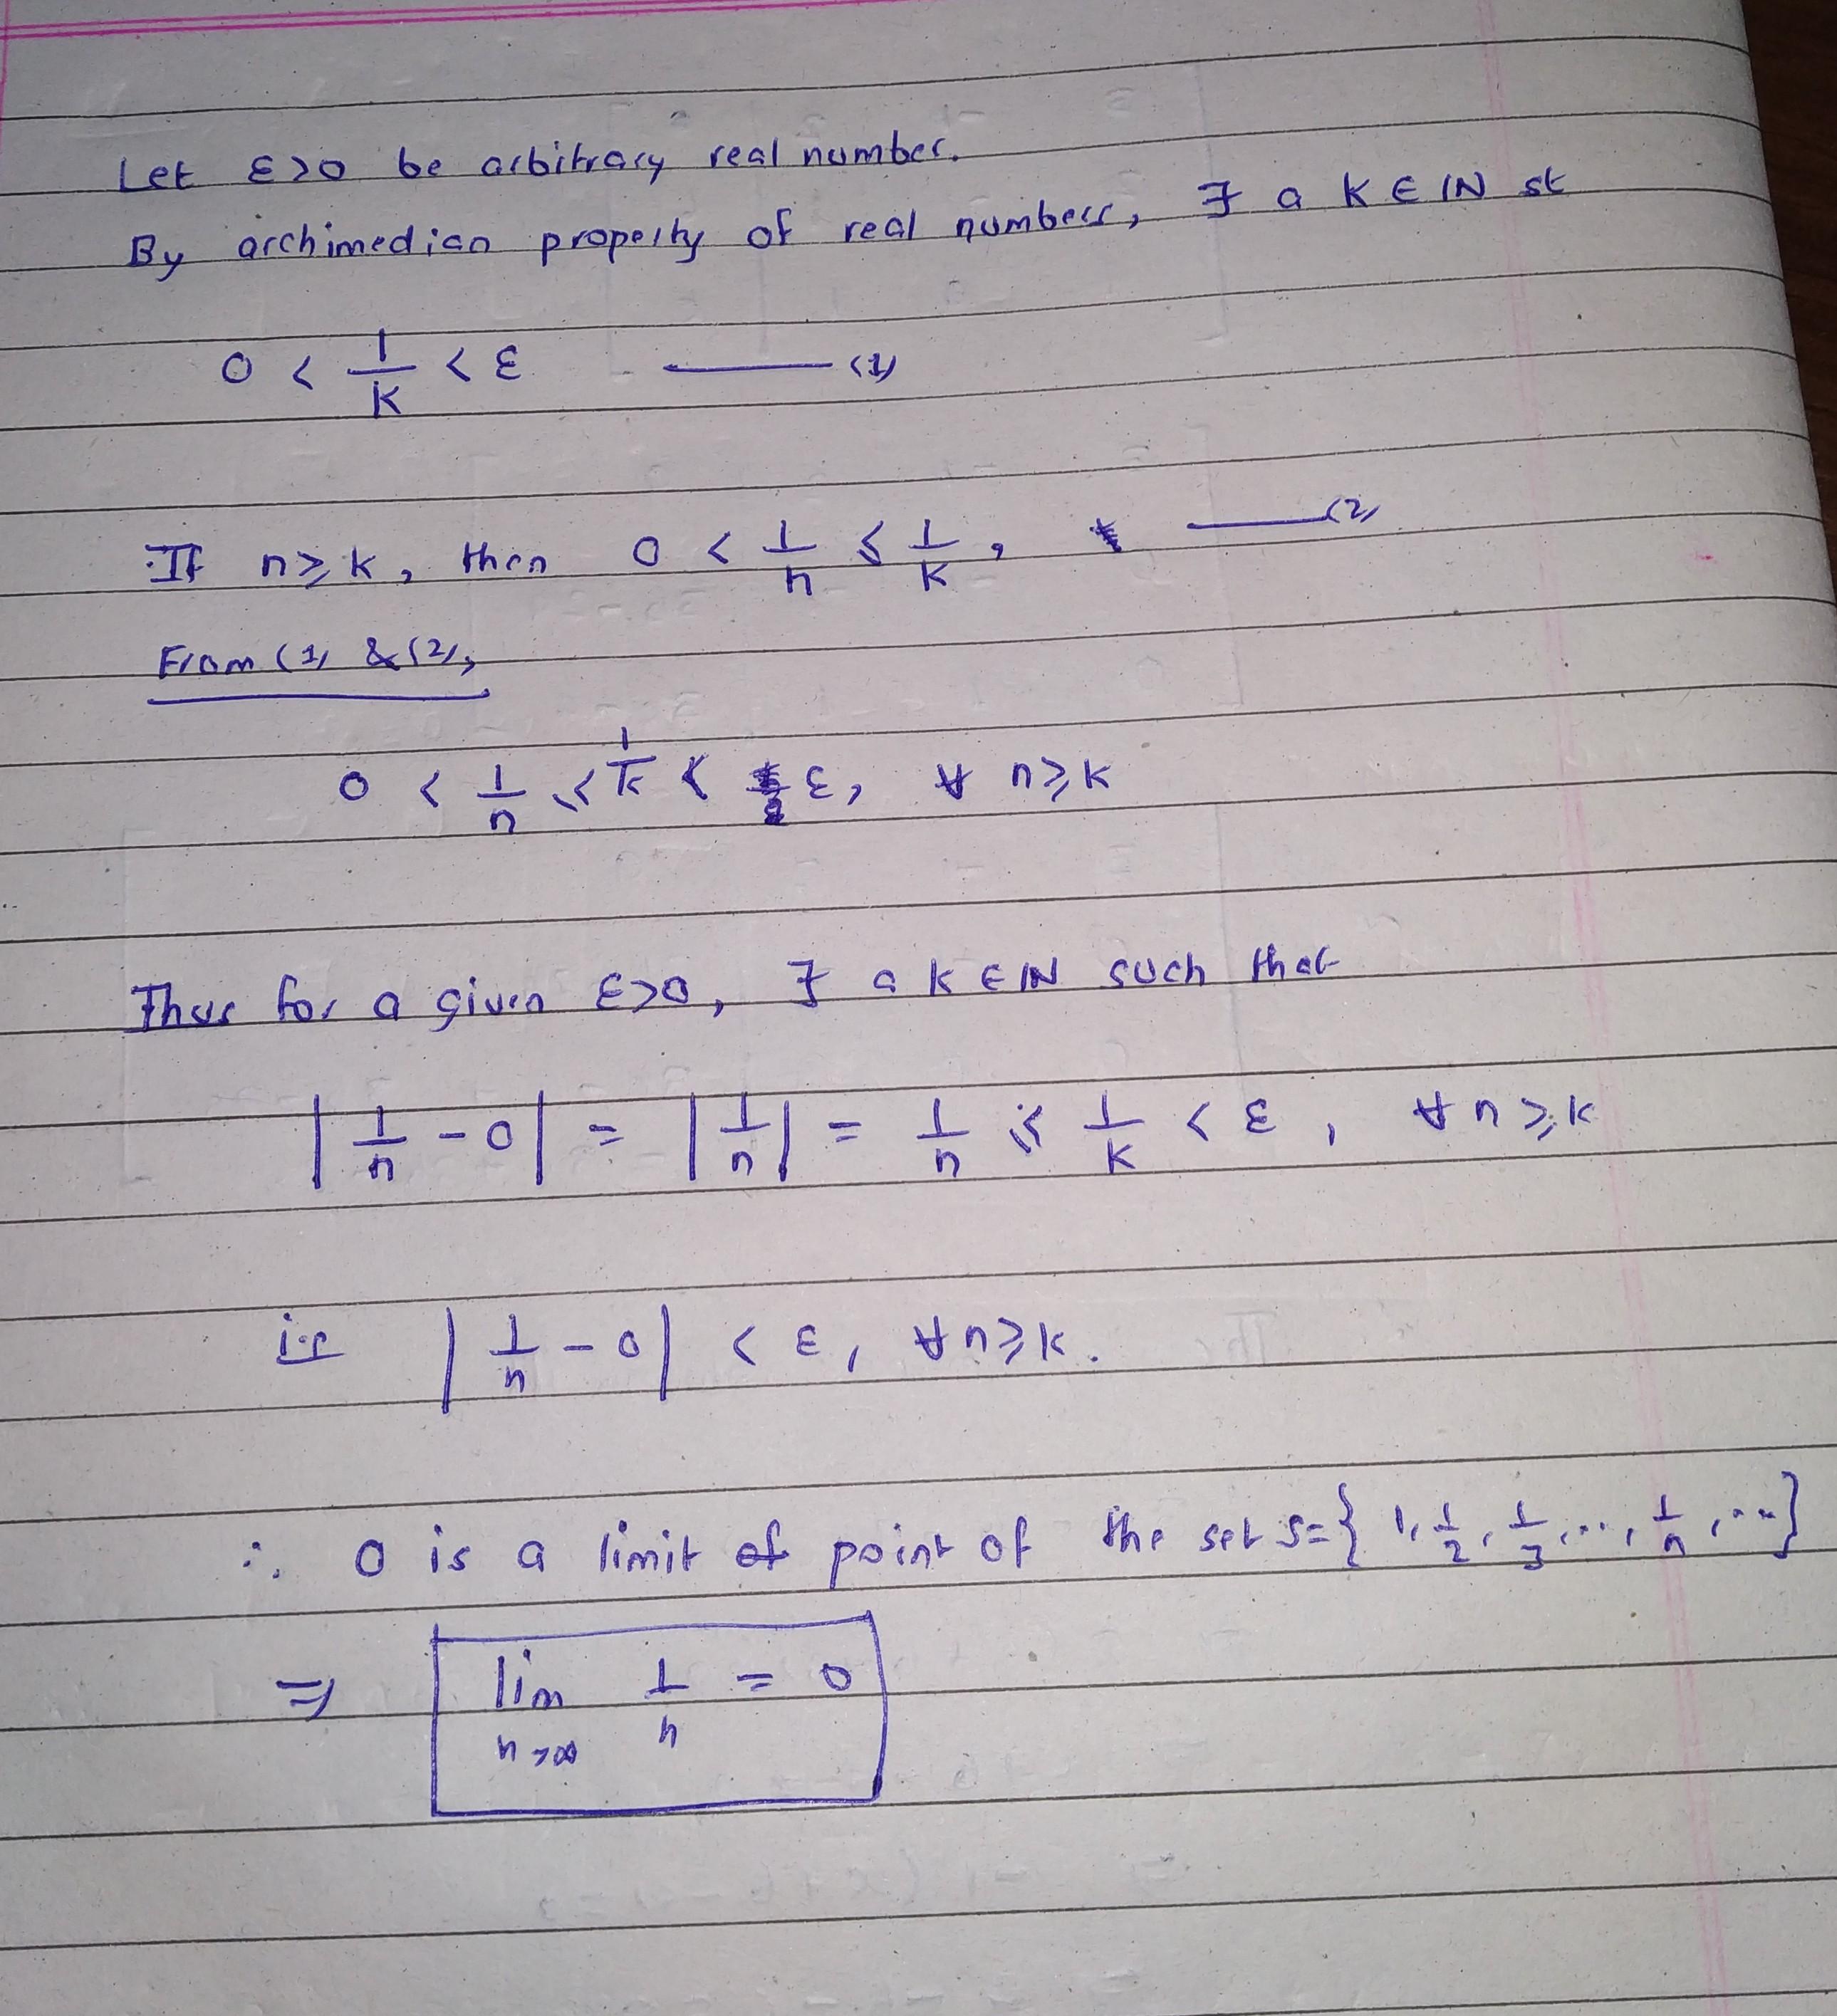 Let ε>0 be arbitrary real number.
By archimedian property of real numbers, ∃ a K ∈ ℕ st
0 < 1/K < ε ——— (1)
If n ≥ K, then 0 < 1/n ≤ 1/K, ——— (2)
From (1) & (2),
0 < 1/n ≤ 1/K < ε, ∀ n ≥ K
Thus for a given ε>0, ∃ a K ∈ ℕ such that
|1/n - 0| = |1/n| = 1/n ≤ 1/K < ε, ∀ n ≥ K
i.e |1/n - 0| < ε, ∀ n ≥ K.
∴ 0 is a limit of point of the set S = { 1, 1/2, 1/3, ..., 1/n, ... }
⇒ lim n→∞ 1/n = 0